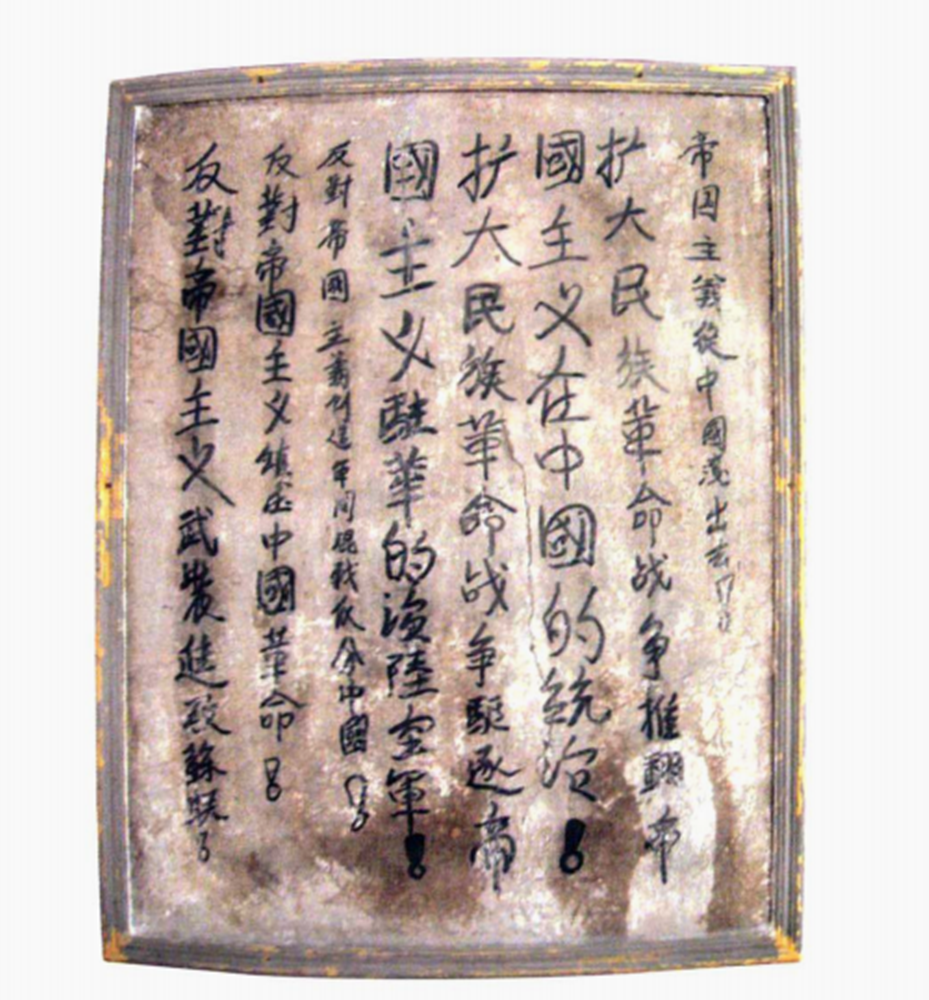 帝囯主義從中國滚出去！
扩大民族革命战争推翻帝
國主义在中國的統治！
扩大民族革命战争驅逐帝
國主义駐華的海陸空軍！
反對帝國主義制造军閥混战瓜分中國！
反對帝國主义鎮压中國革命！
反對帝國主义武裝進攻蘇联！